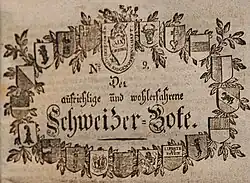 Nº 2.
Der
aufrichtige und wohlerfahrene
Schweizer-Bote.